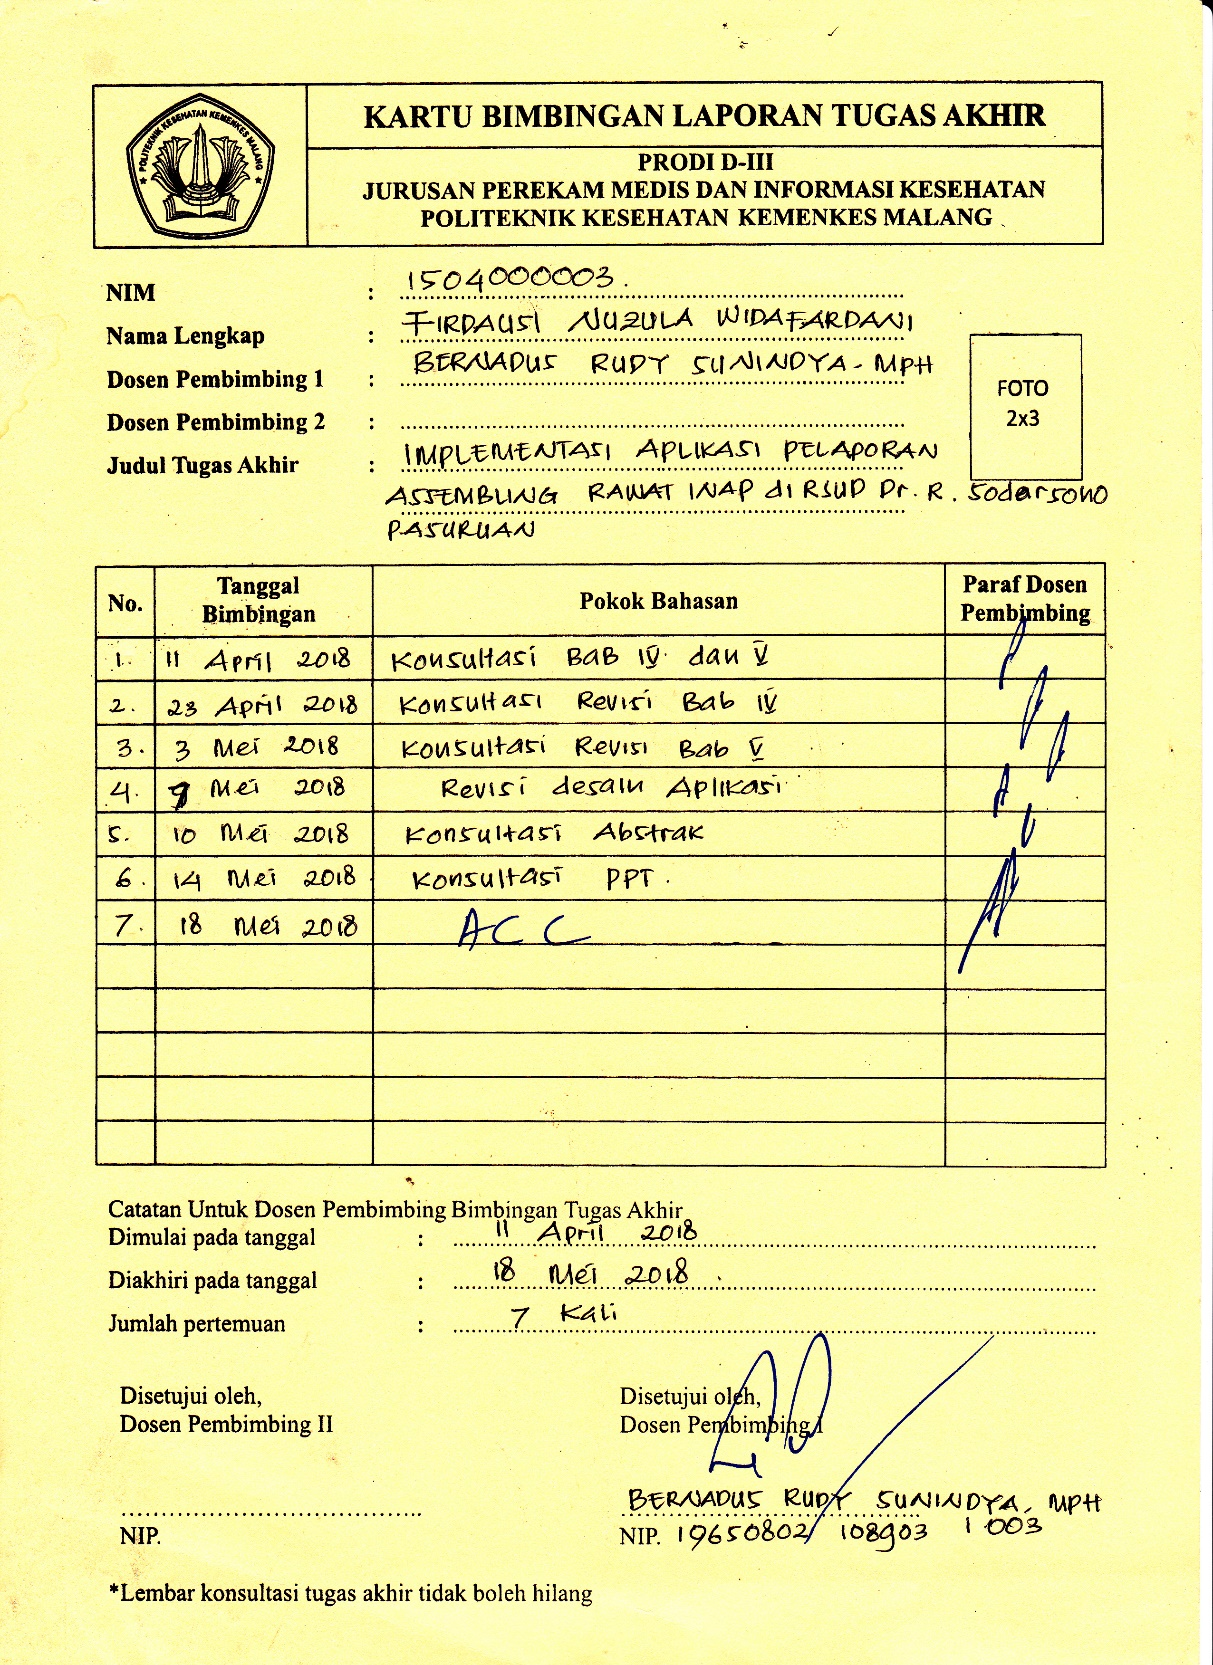 POLITEKNIK KESEHATAN KEMENKES MALANG
KARTU BIMBINGAN LAPORAN TUGAS AKHIR
PRODI D-III
JURUSAN PEREKAM MEDIS DAN INFORMASI KESEHATAN
POLITEKNIK KESEHATAN KEMENKES MALANG
NIM : 1504000003.
Nama Lengkap : FIRDAUSI NUZULA WIDAFARDANI
Dosen Pembimbing 1 : BERNADUS RUDY SUNINDYA - MPH
Dosen Pembimbing 2 :
FOTO
2x3
Judul Tugas Akhir : IMPLEMENTASI APLIKASI PELAPORAN
ASSEMBLING RAWAT INAP di RSUD Dr. R. Sodarsono
PASURUAN
No. Tanggal Bimbingan Pokok Bahasan Paraf Dosen Pembimbing
1. 11 April 2018 Konsultasi BAB IV dan V
2. 23 April 2018 Konsultasi Revisi Bab IV
3. 3 Mei 2018 Konsultasi Revisi Bab V
4. 9 Mei 2018 Revisi desain Aplikasi
5. 10 Mei 2018 Konsultasi Abstrak
6. 14 Mei 2018 Konsultasi PPT.
7. 18 Mei 2018 ACC
Catatan Untuk Dosen Pembimbing Bimbingan Tugas Akhir
Dimulai pada tanggal : 11 April 2018
Diakhiri pada tanggal : 18 Mei 2018
Jumlah pertemuan : 7 Kali
Disetujui oleh, Disetujui oleh,
Dosen Pembimbing II Dosen Pembimbing I
BERNADUS RUDY SUNINDYA, MPH
NIP. NIP. 19650802 108903 1 003
*Lembar konsultasi tugas akhir tidak boleh hilang